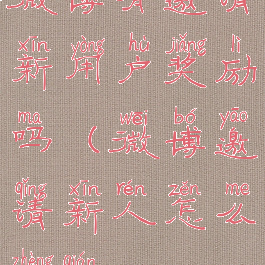 xīn yòng hù jiǎng lì
新用户奖励
ma wēi bó yāo
吗（微博邀
qǐng xīn rén zěn me
请新人怎么
zhèng qián